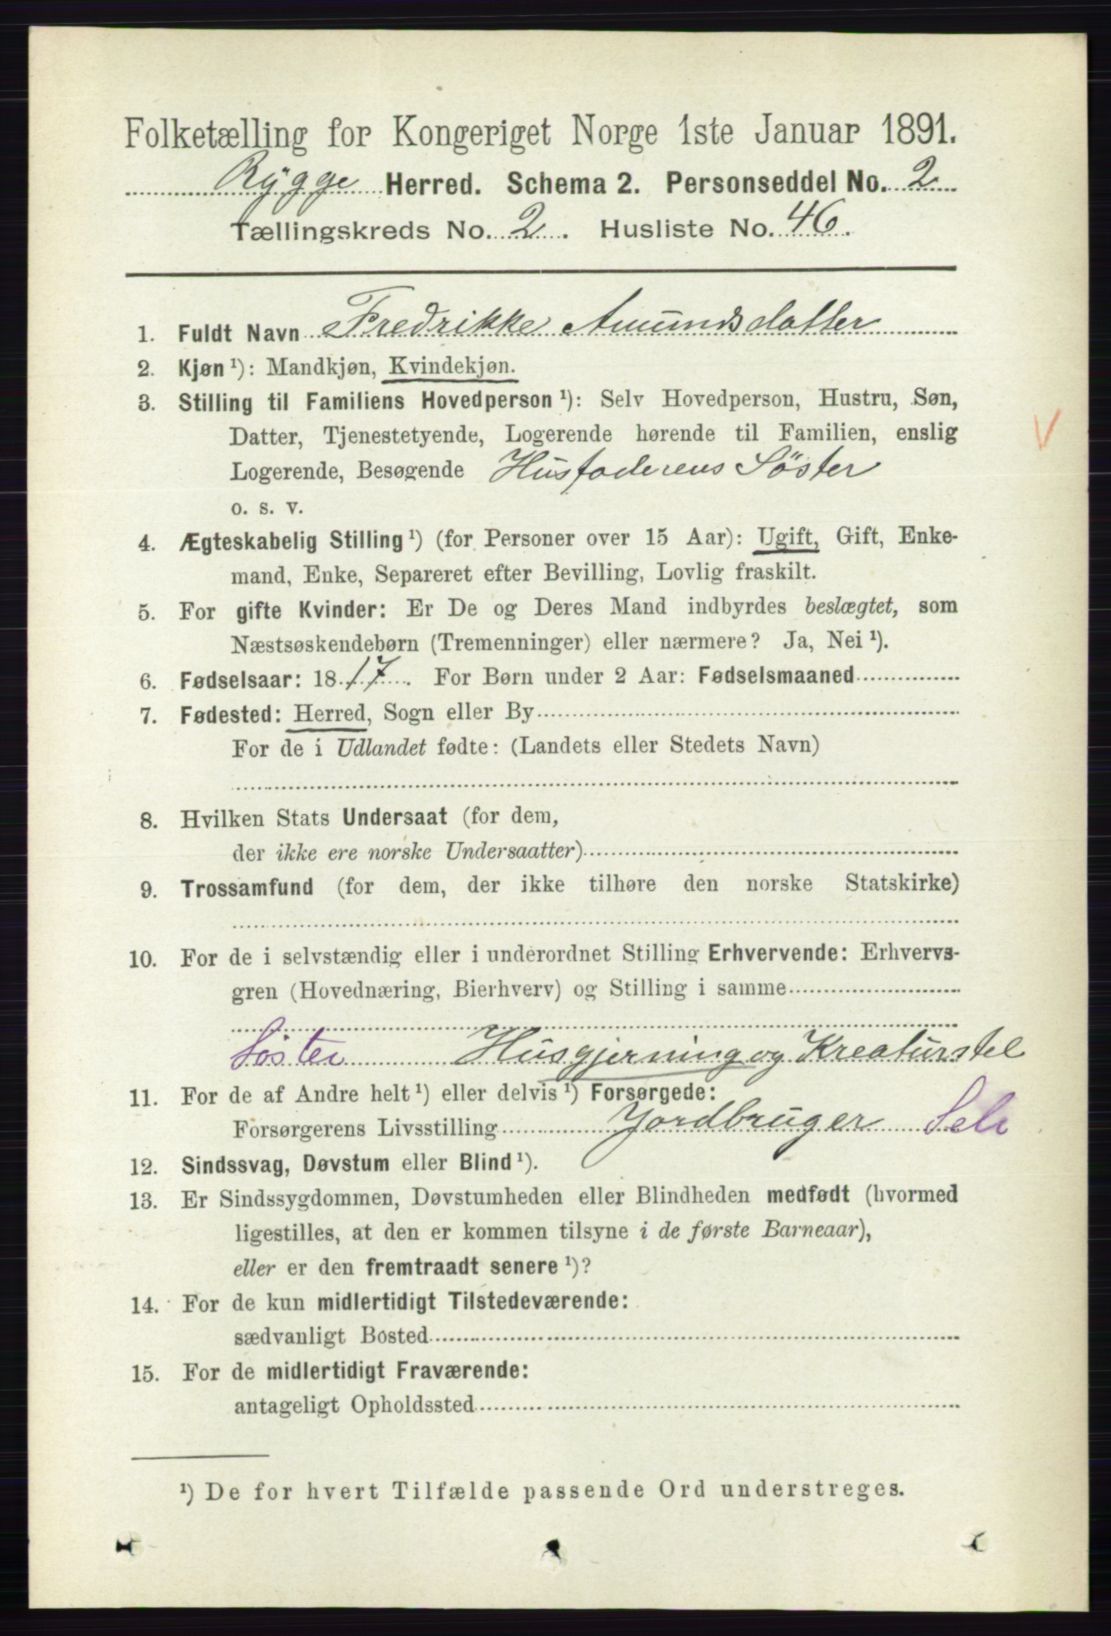 Folketælling for Kongeriget Norge 1ste Januar 1891.
Rygge Herred. Schema 2. Personseddel No. 2
Tællingskreds No. 2. Husliste No. 46.
1. Fuldt Navn Fredrikke Amundsdatter
2. Kjøn ¹): Mandkjøn, Kvindekjøn.
3. Stilling til Familiens Hovedperson ¹): Selv Hovedperson, Hustru, Søn,
Datter, Tjenestetyende, Logerende hørende til Familien, enslig
Logerende, Besøgende Husfaderens Söster
o. s. v.
V
4. Ægteskabelig Stilling ¹) (for Personer over 15 Aar): Ugift, Gift, Enke-
mand, Enke, Separeret efter Bevilling, Lovlig fraskilt.
5. For gifte Kvinder: Er De og Deres Mand indbyrdes beslægtet, som
Næstsøskendebørn (Tremenninger) eller nærmere? Ja, Nei ¹).
6. Fødselsaar: 1817. For Børn under 2 Aar: Fødselsmaaned
7. Fødested: Herred, Sogn eller By
For de i Udlandet fødte: (Landets eller Stedets Navn)
8. Hvilken Stats Undersaat (for dem,
der ikke ere norske Undersaatter)
9. Trossamfund (for dem, der ikke tilhøre den norske Statskirke)
10. For de i selvstændig eller i underordnet Stilling Erhvervende: Erhvervs-
gren (Hovednæring, Bierhverv) og Stilling i samme
Söster Husgjerning og Kreaturstel
11. For de af Andre helt ¹) eller delvis ¹) Forsørgede:
Forsørgerens Livsstilling Jordbruger Selv
12. Sindssvag, Døvstum eller Blind ¹).
13. Er Sindssygdommen, Døvstumheden eller Blindheden medfødt (hvormed
ligestilles, at den er kommen tilsyne i de første Barneaar),
eller er den fremtraadt senere ¹)?
14. For de kun midlertidigt Tilstedeværende:
sædvanligt Bosted
15. For de midlertidigt Fraværende:
antageligt Opholdssted
¹) De for hvert Tilfælde passende Ord understreges.